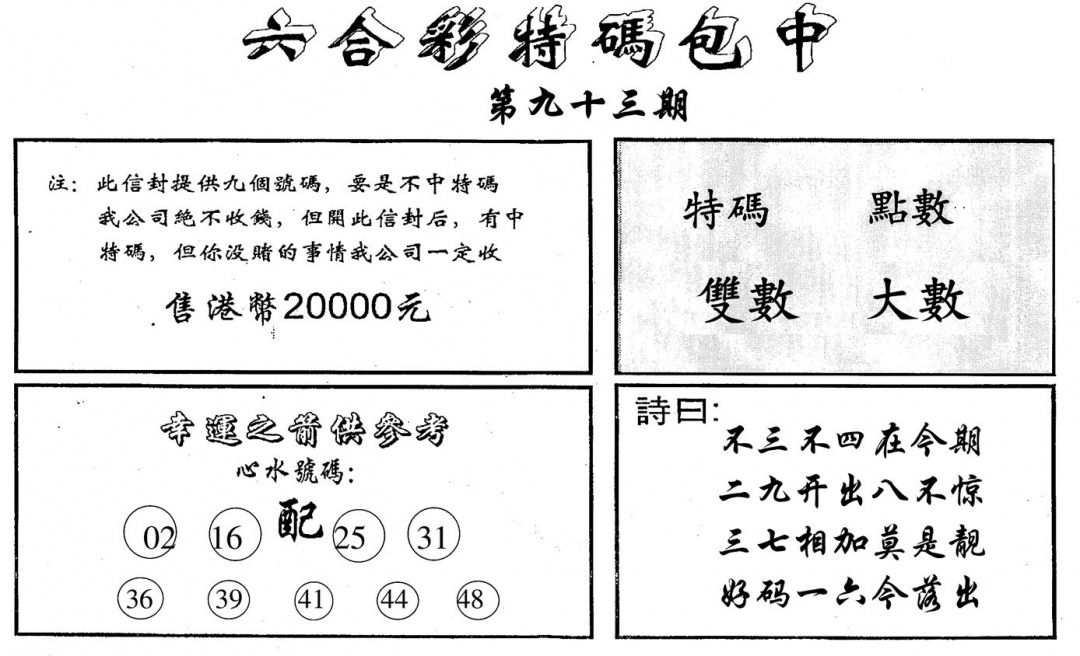 六合彩特碼包中
第九十三期
注：此信封提供九個號碼，要是不中特碼
我公司絕不收錢，但開此信封后，有中
特碼，但你没賭的事情我公司一定收
售港幣20000元
特碼 點數
雙數 大數
幸運之箭供參考
心水號碼：
02 16 配 25 31
36 39 41 44 48
詩曰：
不三不四在今期
二九开出八不惊
三七相加莫是靓
好码一六今落出